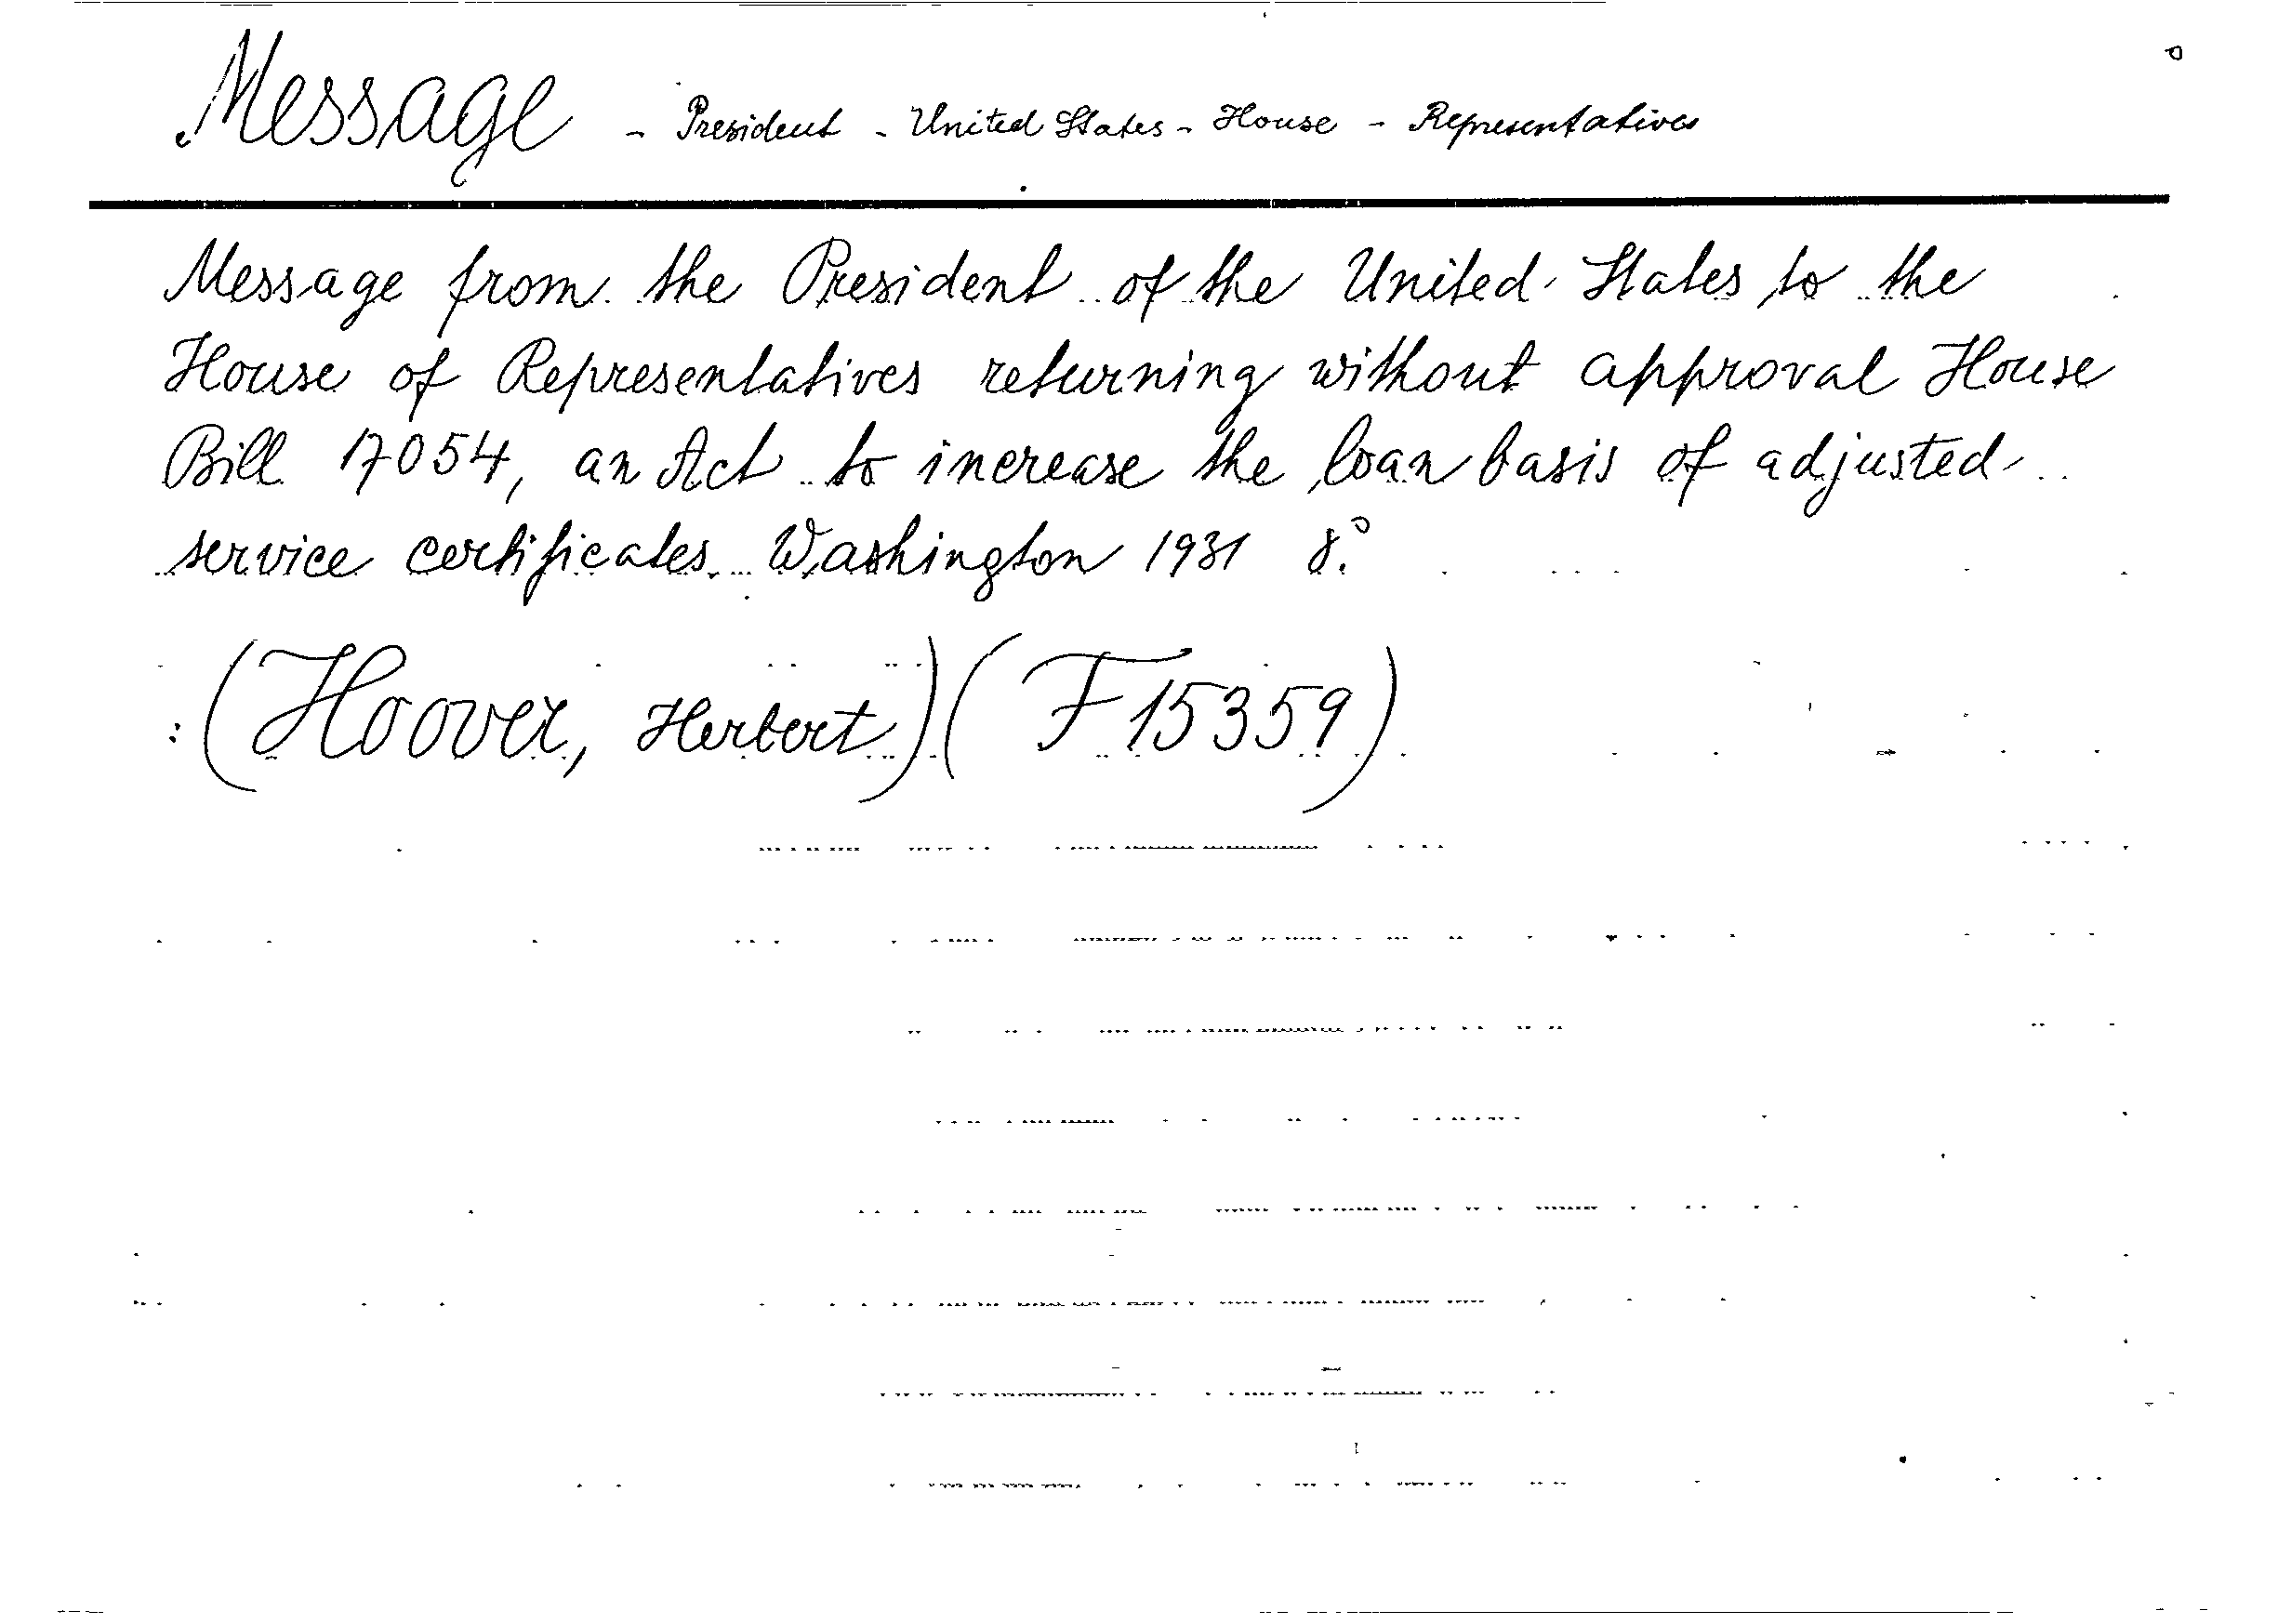 Message - President - United States - House - Representatives
Message from the President of the United States to the
House of Representatives returning without approval House
Bill 17054, an Act to increase the loan basis of adjusted
service certificates. Washington 1931 8.°
(Hoover, Herbert) (F 15359)